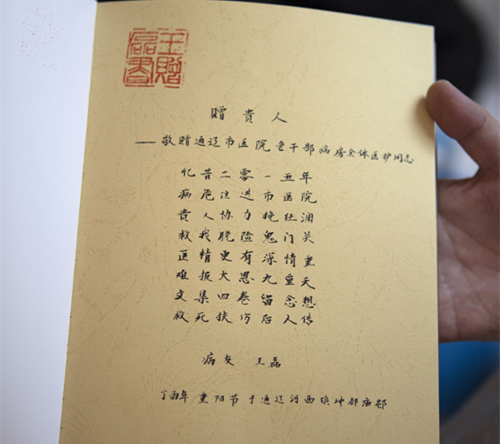 王磊
赠書
赠貴人
——敬赠通辽市医院老干部病房全体医护同志
忆昔二零一五年
病危住进市医院
贵人协力挽狂澜
救我脱险鬼门关
医精更有深情重
难报大恩九重天
文集四卷留念想
救死扶伤后人传
病友 王磊
丁酉年 重阳节 于通辽河西镇